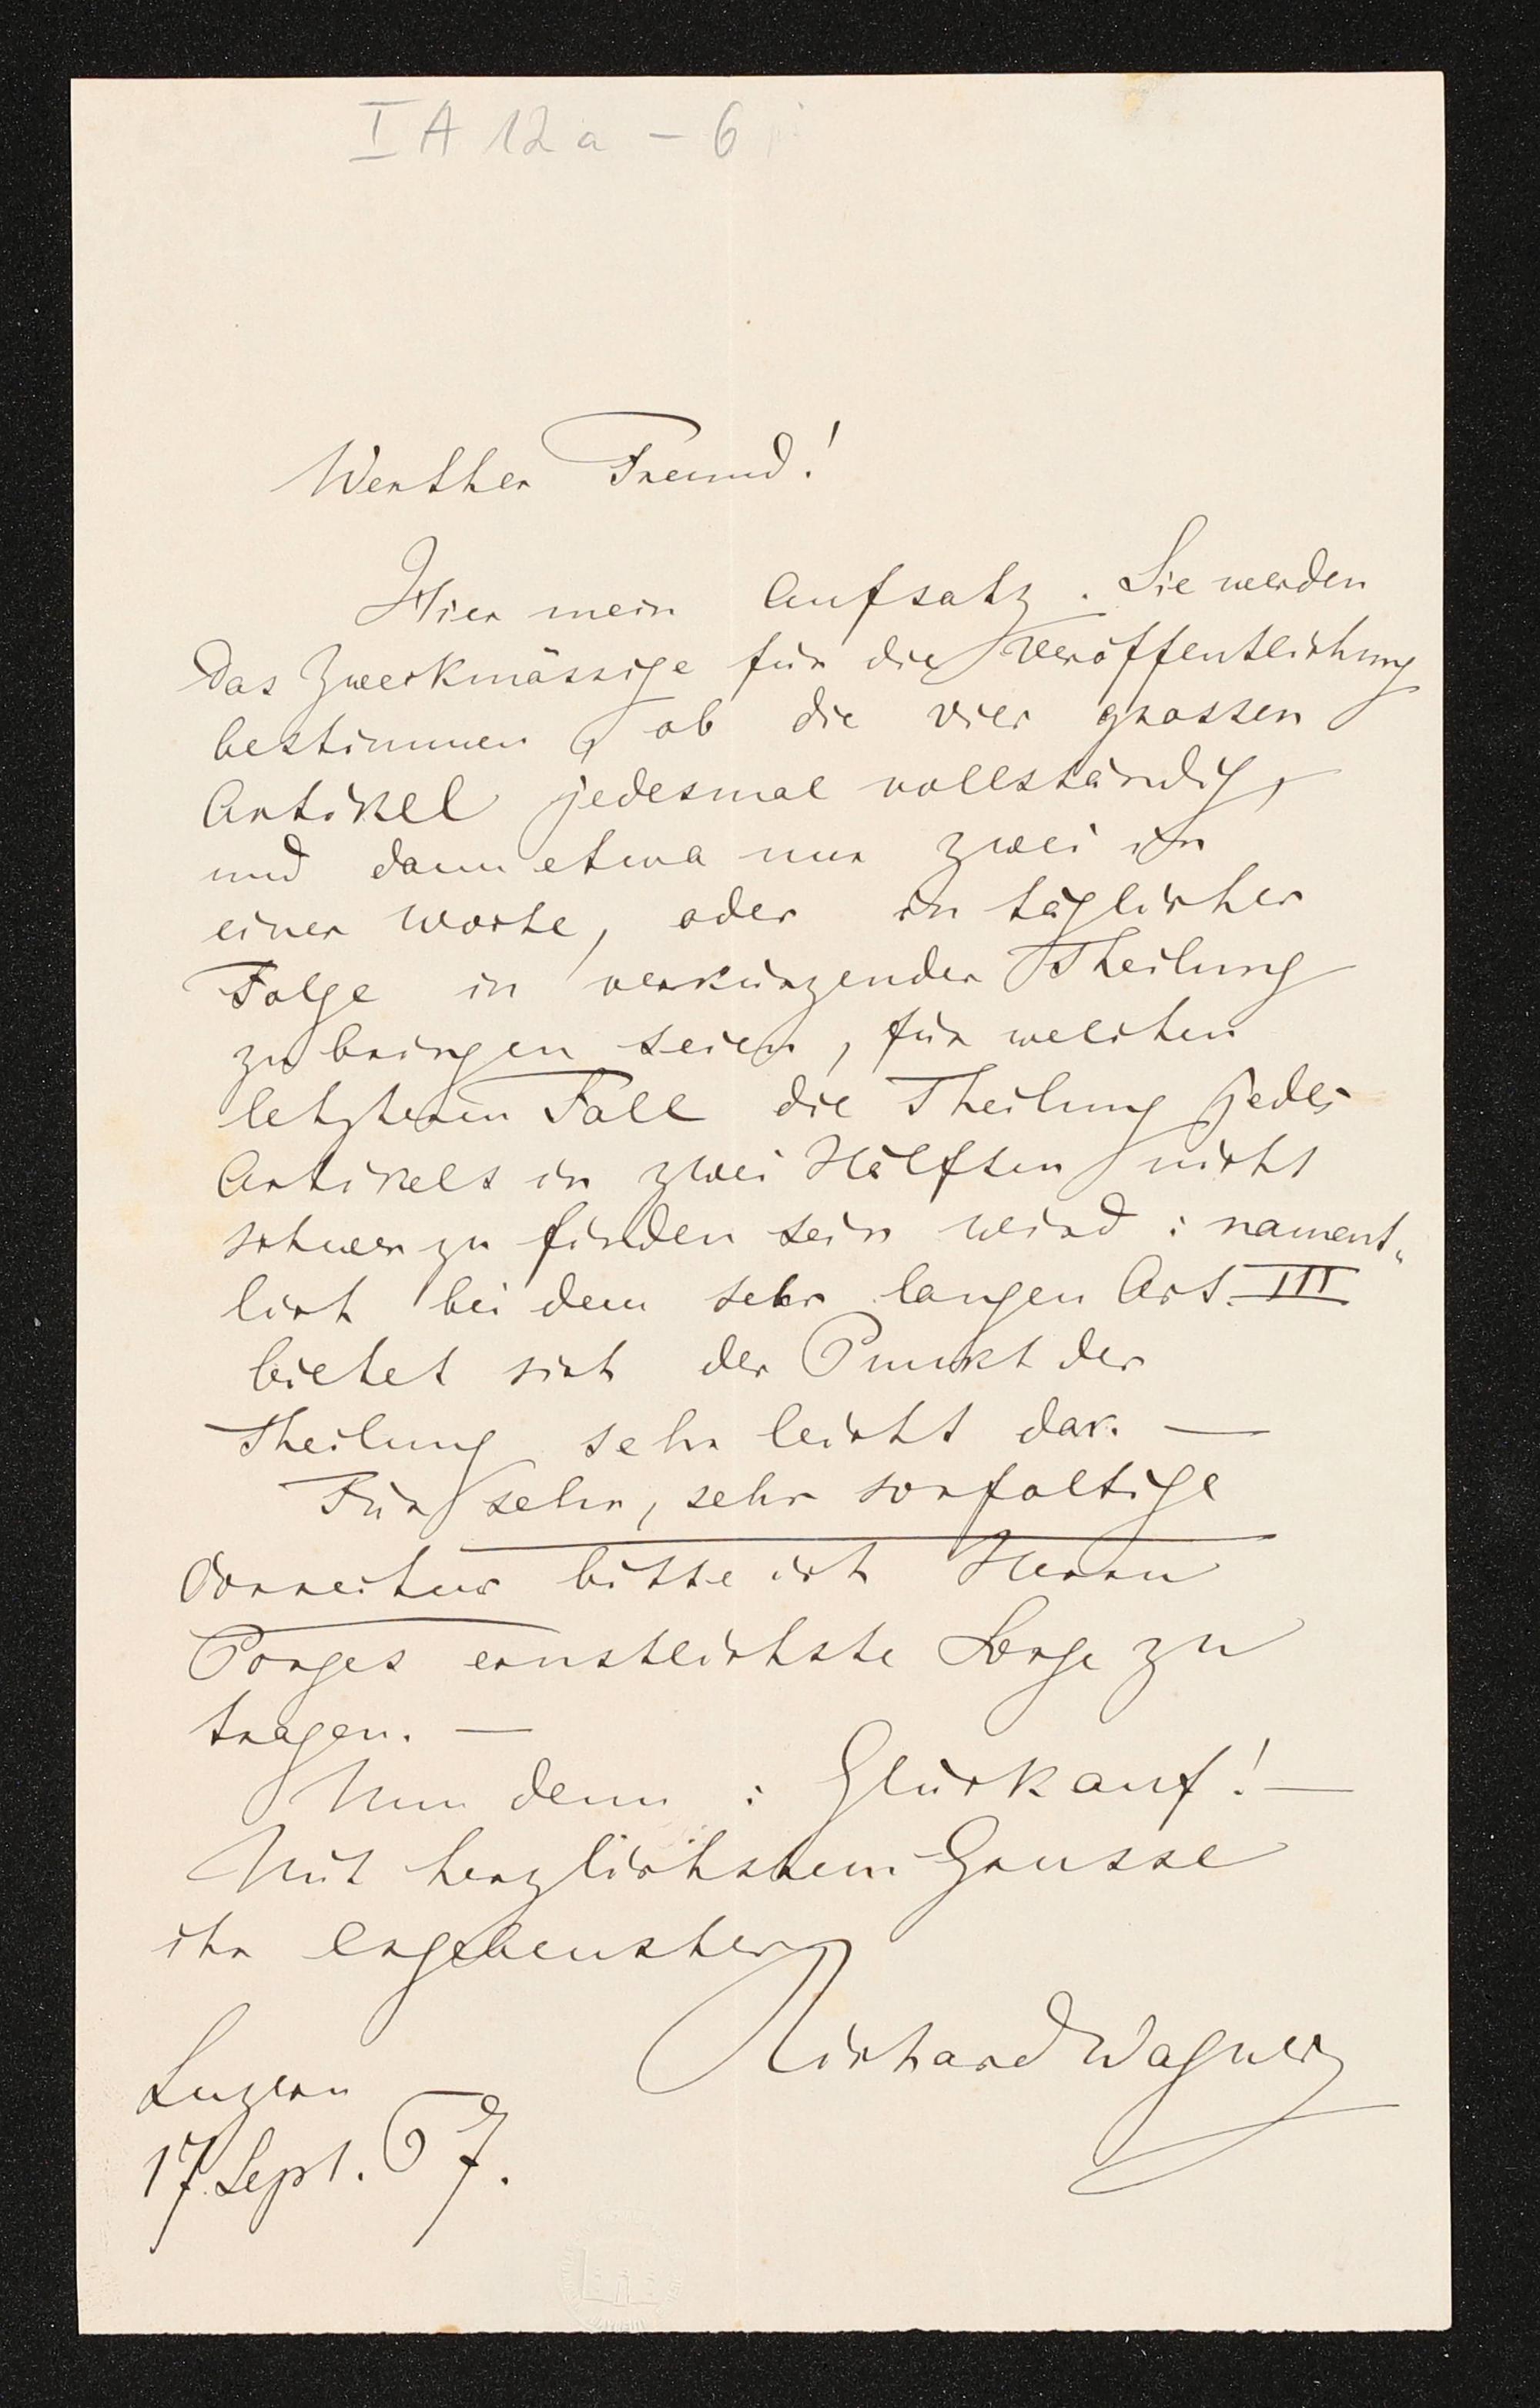 I A 12a - 6
Werther Freund!
Hier mein Aufsatz. Sie werden
das Zweckmässige für die Veröffentlichung
bestimmen, ob die vier grossen
Artikel jedesmal vollständig,
und dann etwa nur zwei in
einer Woche, oder in täglicher
Folge in verkürzender Theilung
zu bringen seien, für welchen
letzteren Fall die Theilung jedes
Artikels in zwei Hälften nicht
schwer zu finden sein wird: nament„
lich bei dem sehr langen Art. III
bietet sich der Punkt der
Theilung sehr leicht dar. —
Für sehr, sehr sorfaltige
Correctur bitte ich Herrn
Porges ernstlichste Sorge zu
tragen. —
Nun denn: Glück auf! —
Mit herzlichstem Grusse
ihr ergebenster
Richard Wagner
Luzern
17 Sept. 67.